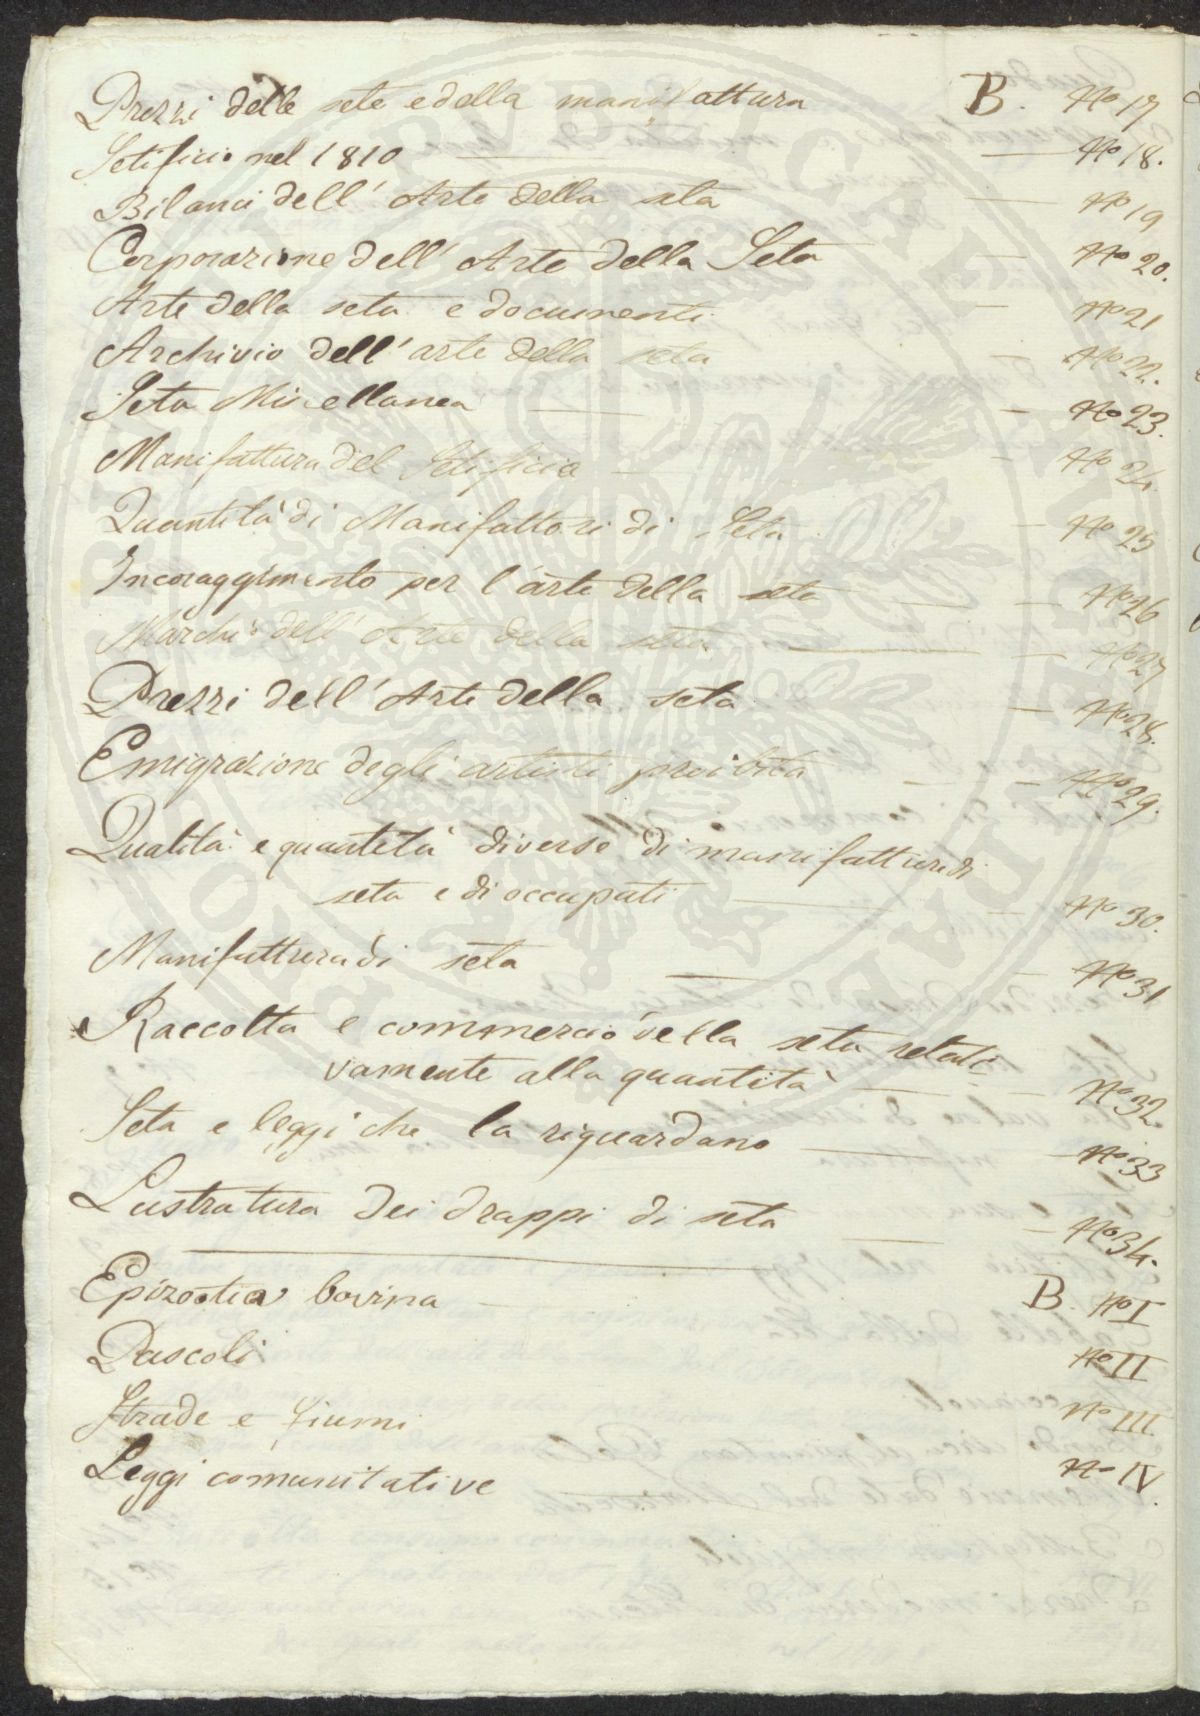 Prezzi delle sete e della manifattura B. No 17
Setificio nel 1810 No 18.
Bilanci dell' Arte della seta No 19
Corporazione dell' Arte della Seta No 20.
Arte della seta e documenti No 21
Archivio dell' arte della seta No 22.
Seta Miscellanea No 23.
Manifattura del Setificio No 24.
Quantità di Manifattori di Seta No 25
Incoraggimento per l'arte della seta No 26
Marchi dell' Arte della seta No 27
Prezzi dell' Arte della seta No 28.
Emigrazione degli artisti proibita No 29.
Qualità e quantità diverse di manifatture di
seta e di occupati No 30.
Manifattura di seta No 31
Raccolta e commercio della seta relati-
vamente alla quantità No 32.
Seta e leggi che la riguardano No 33
Lustratura dei drappi di seta No 34.
Epizootia bovina B. No I
Pascoli No II
Strade e fiumi No III.
Leggi comunitative No IV.